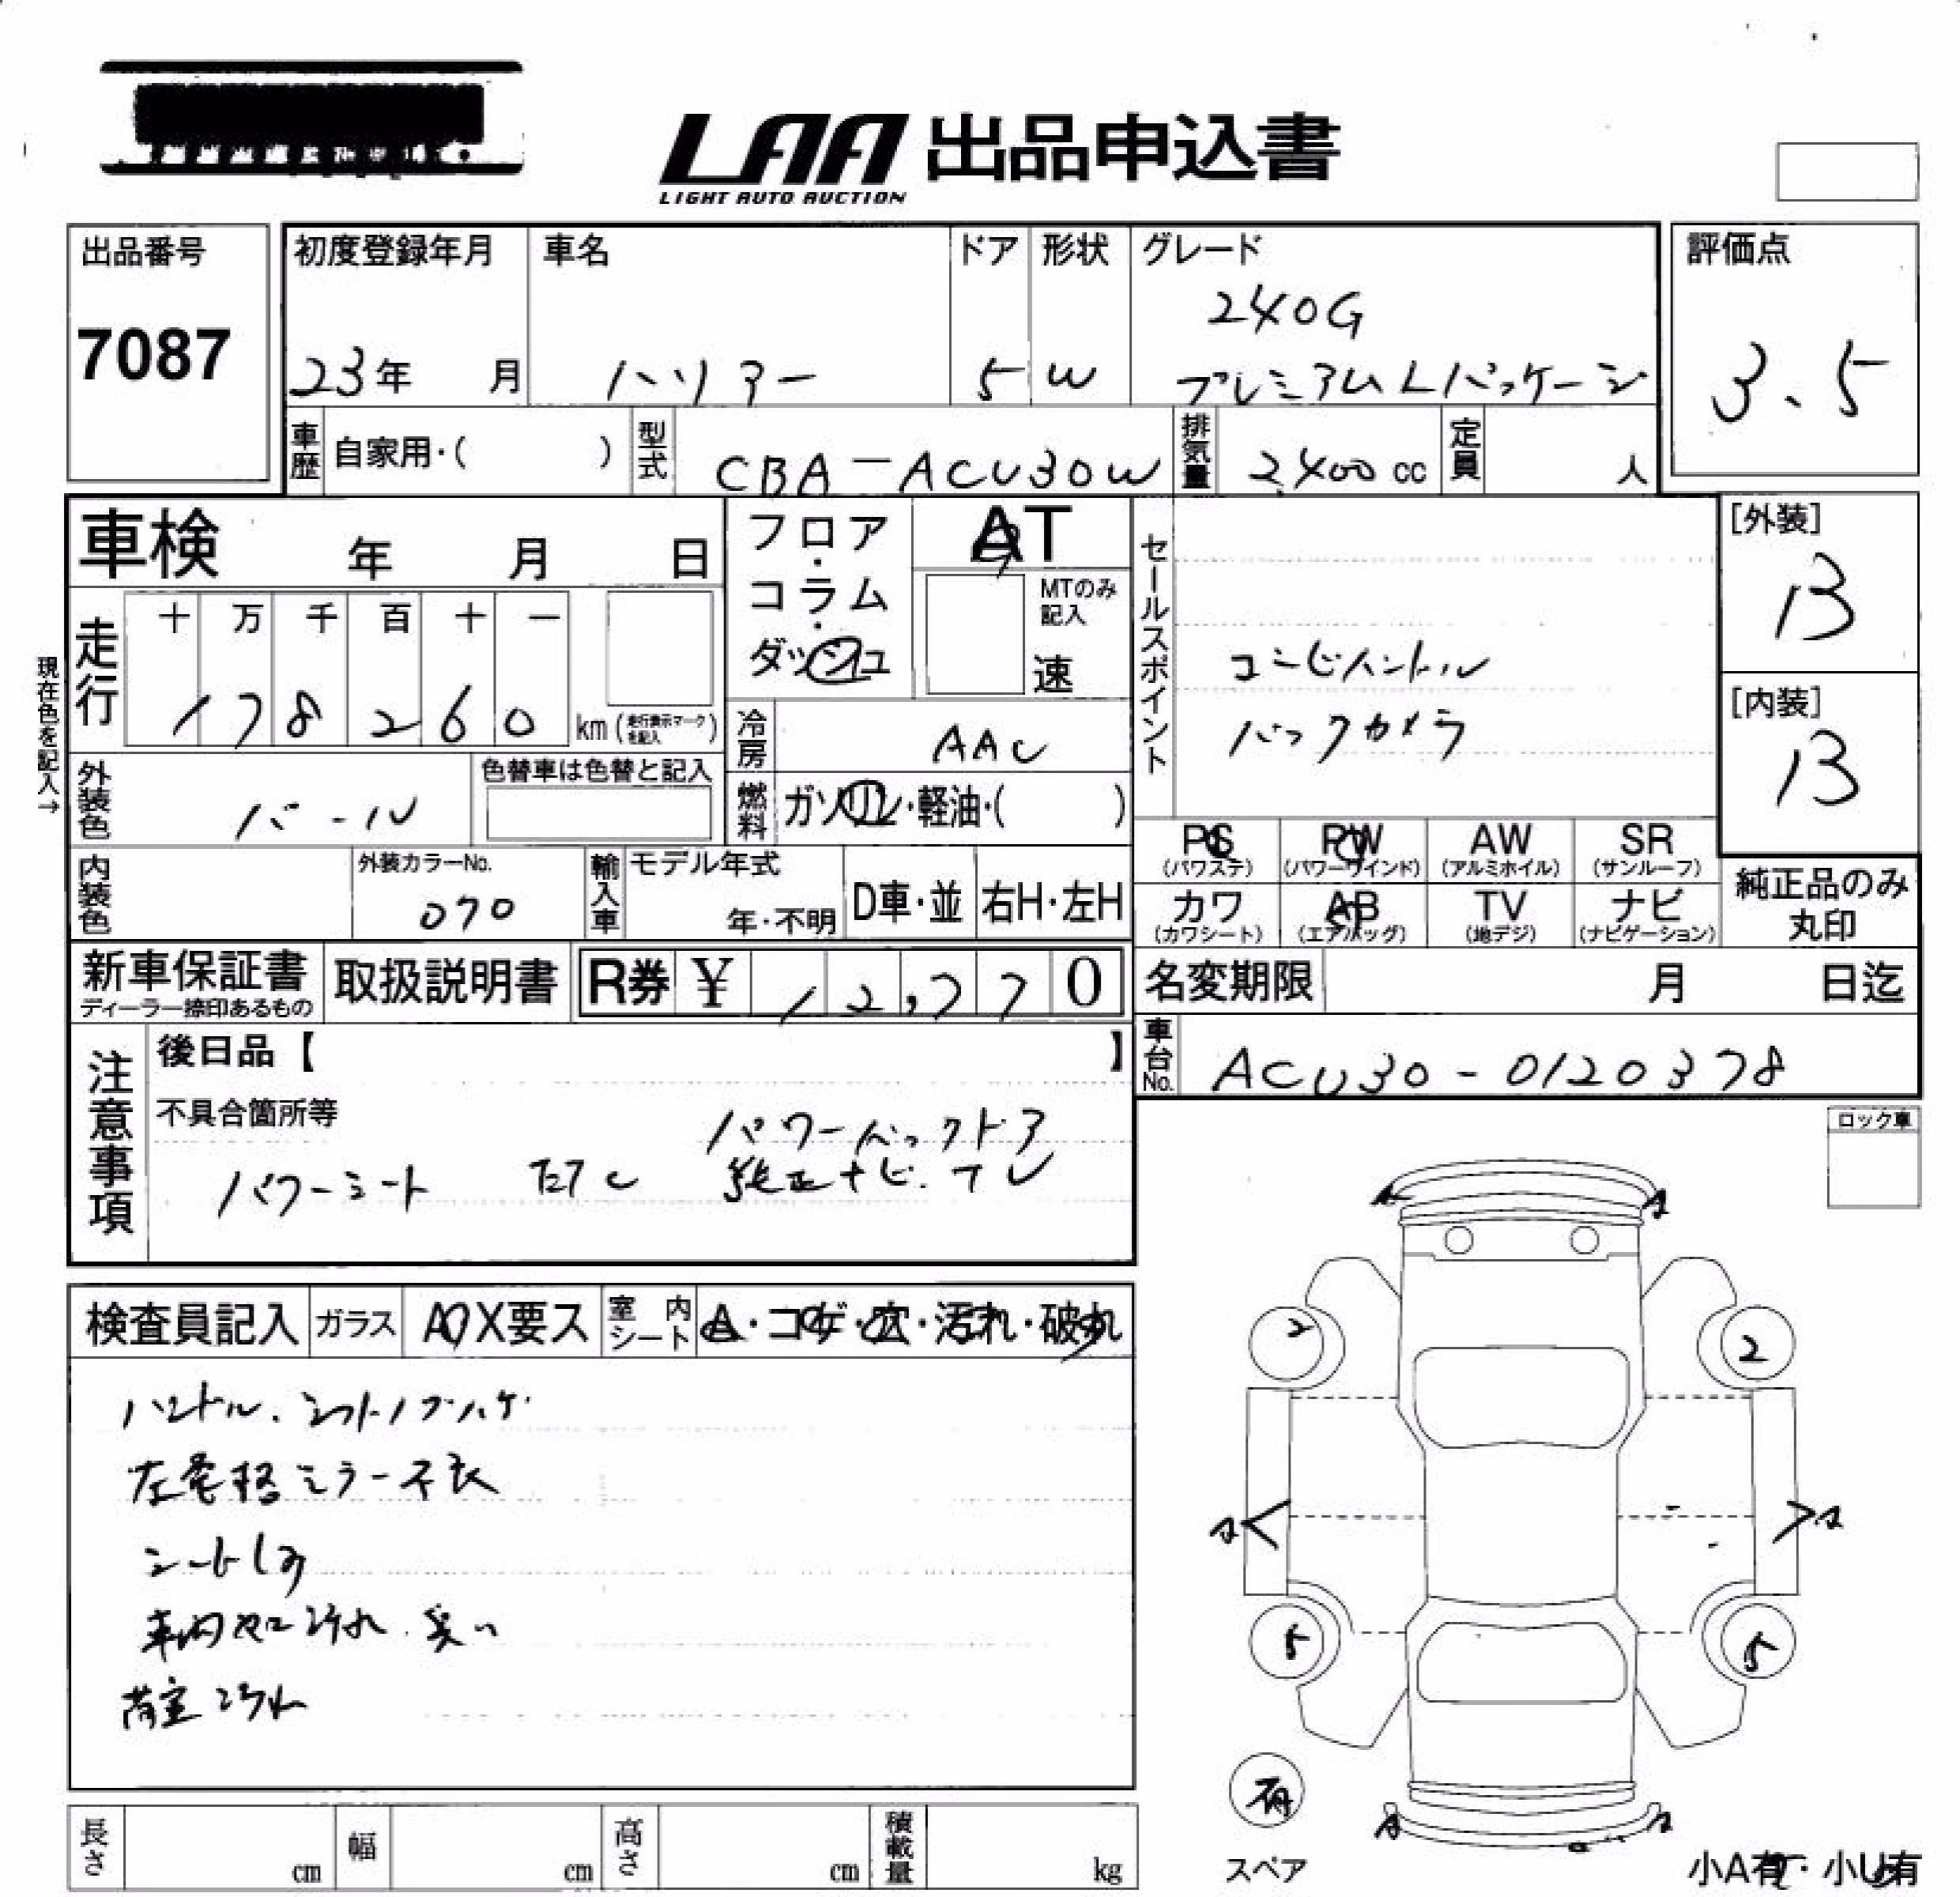 LAA 出品申込書
LIGHT AUTO AUCTION
出品番号
7087
初度登録年月
23年 月
車名
ハリアー
ドア
5
形状
W
グレード
240G
プレミアムLパッケージ
評価点
3.5
車歴 自家用・( )
型式 CBA-ACU30W
排気量 2,400 cc
定員 人
車検 年 月 日
フロア・コラム・ダッシュ
AT
MTのみ記入
速
セールスポイント
コンビハンドル
バックカメラ
[外装]
13
[内装]
13
現在色を記入→
走行
十 万 千 百 十 一
1 7 8 2 6 0 km (走行表示マークを記入)
冷房 AAC
外装色 パール
色替車は色替と記入
燃料 ガソリン・軽油・( )
PS (パワステ)
PW (パワーウインド)
AW (アルミホイル)
SR (サンルーフ)
カワ (カワシート)
AB (エアバッグ)
TV (地デジ)
ナビ (ナビゲーション)
純正品のみ丸印
内装色
外装カラーNo.
070
輸入車 モデル年式
年・不明
D車・並
右H・左H
新車保証書
ディーラー捺印あるもの
取扱説明書
R券 ¥ 12,770
名変期限 月 日迄
車台No. ACU30-0120378
注意事項
後日品【 】
不具合箇所等
パワーバックドア
パワーシート ETC 純正ナビ.TV
ロック車
検査員記入
ガラス A・X要ス
室内シート
A・コゲ・穴・汚れ・破れ
ハンドル、シフトノブハゲ
左電格ミラー不良
シートしみ
車内ヤニ汚れ.臭い
荷室汚れ
2
2
A
A
5
5
有
スペア
小A有・小U有
長さ cm
幅 cm
高さ cm
積載量 kg